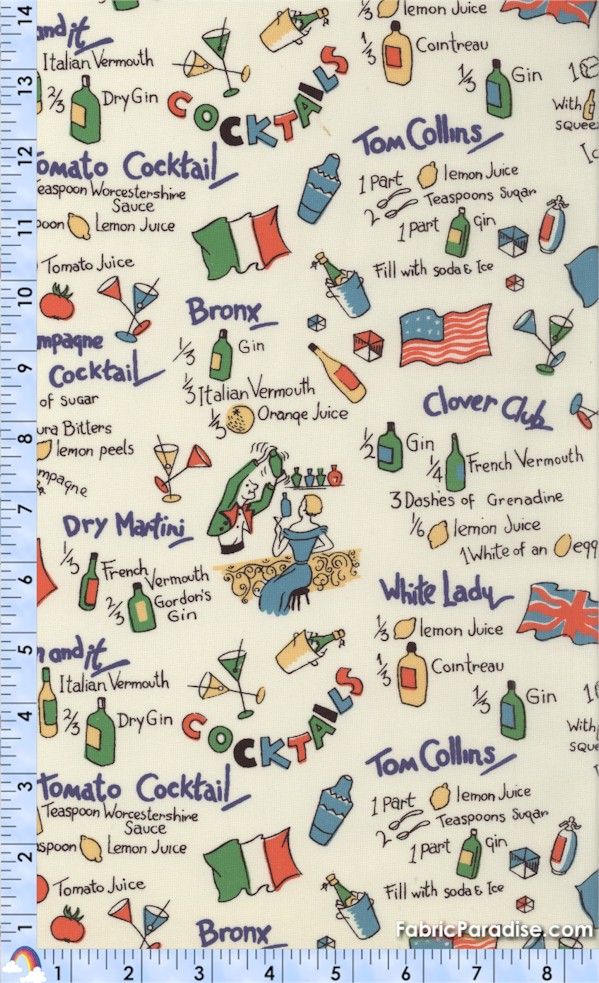 14
13
12
11
10
9
8
7
6
5
4
3
2
1
1 2 3 4 5 6 7 8
and it
Italian Vermouth
2/3 Dry Gin
COCKTAILS
1/3 lemon Juice
1/3 Cointreau
1/3 Gin
With
squee
Tomato Cocktail
easpoon Worcestershire
Sauce
poon Lemon Juice
Tomato Juice
Tom Collins
1 Part lemon Juice
2 Teaspoons Sugar
1 part Gin
Fill with soda & Ice
Bronx
1/3 Gin
1/3 Italian Vermouth
1/3 Orange Juice
mpagne
Cocktail
of sugar
ura Bitters
lemon peels
mpagne
Clover Club
1/2 Gin
1/4 French Vermouth
3 Dashes of Grenadine
1/6 lemon Juice
1 White of an egg
Dry Martini
1/3 French
Vermouth
2/3 Gordon's
Gin
White Lady
1/3 lemon Juice
1/3 Cointreau
1/3 Gin
With
sque
and it
Italian Vermouth
2/3 Dry Gin
COCKTAILS
Tomato Cocktail
Teaspoon Worcestershire
Sauce
aspoon Lemon Juice
Tomato Juice
Tom Collins
1 Part lemon Juice
2 Teaspoons Sugar
1 part Gin
Fill with soda & Ice
Bronx
FabricParadise.com